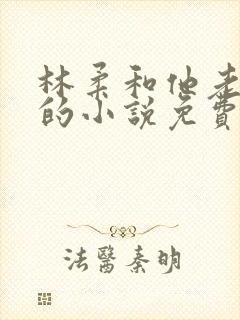 林柔和他走
的小說免費
法醫秦明